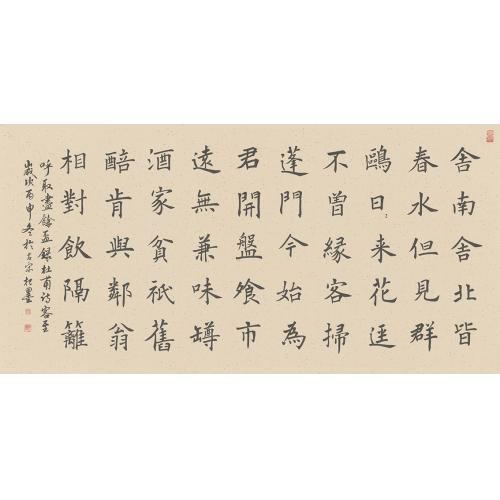 舍南舍北皆
春水但見群
鷗日〻来花逕
不曾緣客掃
蓬門今始為
君開盤飧市
遠無兼味罇
酒家貧祇舊
醅肯與鄰翁
相對飲隔籬
呼取盡餘盃録杜甫诗客至
歲次丙申冬於